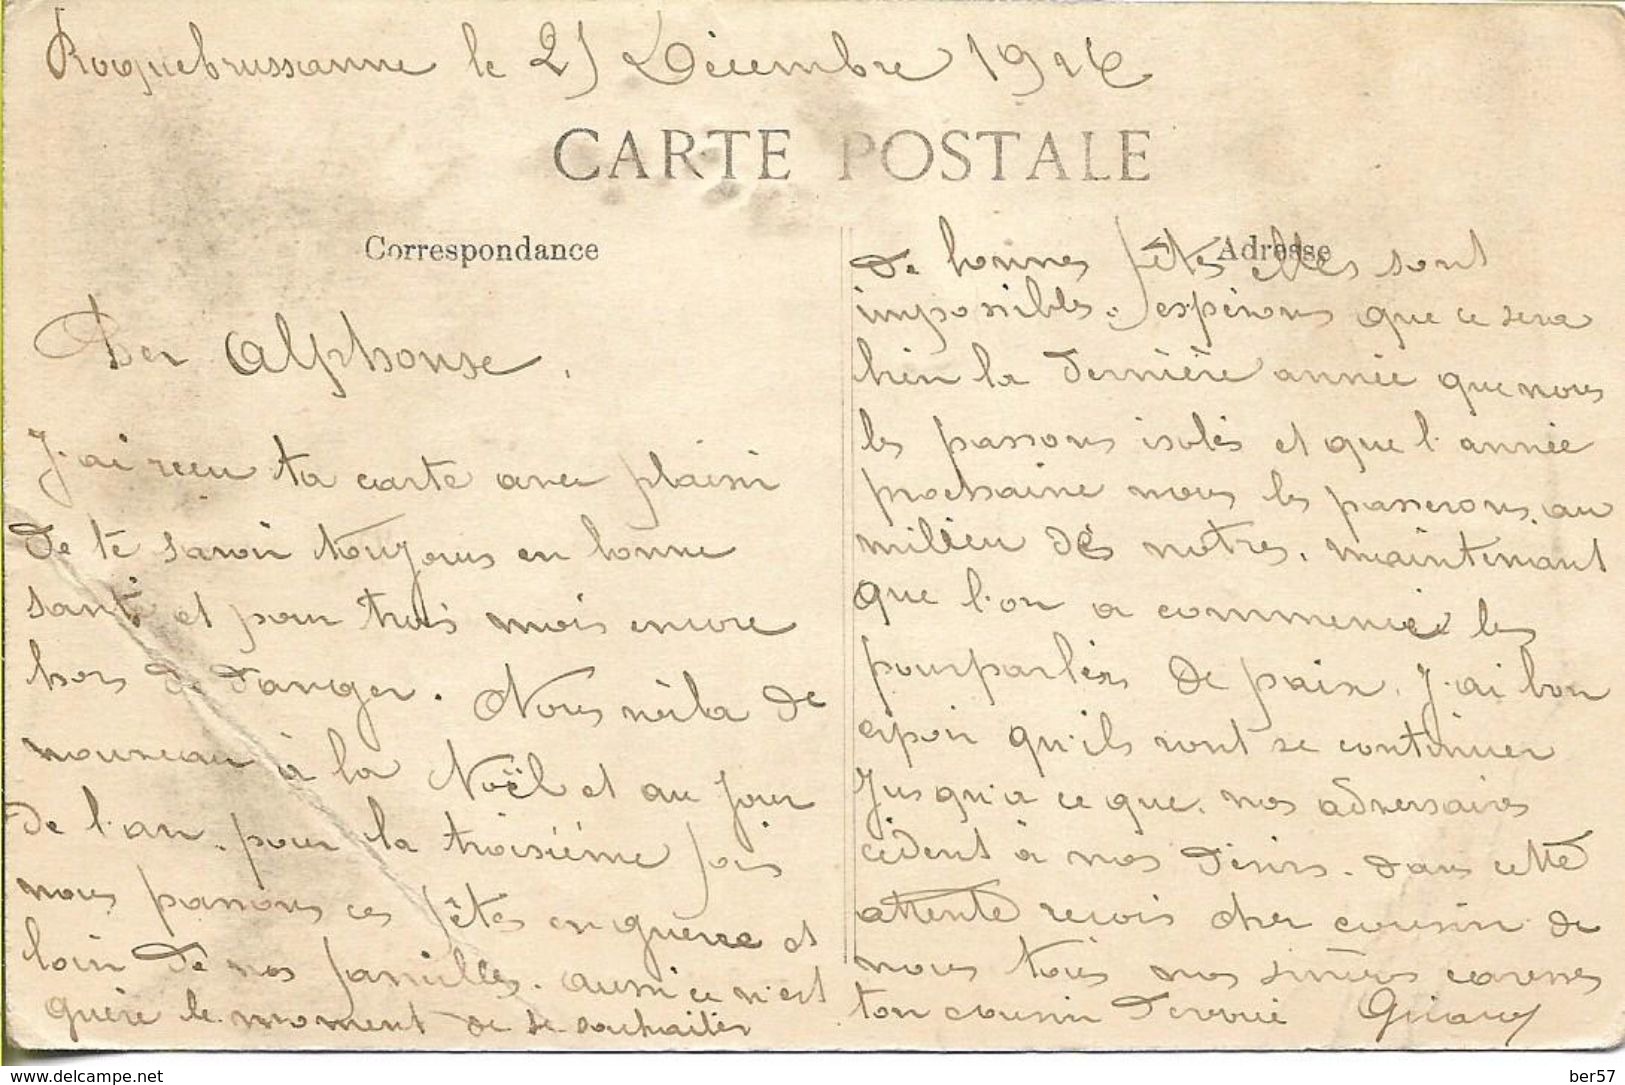 Roquebrussanne le 25 Décembre 1916
CARTE POSTALE
Correspondance
Adresse
Cher Alphonse.
J'ai reçu ta carte avec plaisir
de te savoir toujours en bonne
santé et pour trois mois encore
hors de danger. Nous voila de
nouveau à la Noël et au jour
de l'an. pour la troisième fois
nous passons ces fêtes en guerre et
loin de nos familles. aussi ce n'est
guère le moment de se souhaiter
de bonnes fêtes elles sont
impossibles. espérons que ce sera
bien la dernière année que nous
les passons isolés et que l'année
prochaine nous les passerons au
milieu des notres. maintenant
que l'on a commencé les
pourparlers de paix. J'ai bon
espoir qu'ils vont se continuer
Jusqu'a ce que nos adversaires
cèdent à nos désirs. dans cette
attente reçois cher cousin de
nous tois nos sincères caresses
ton cousin dévoué
delcampe.net
ber57